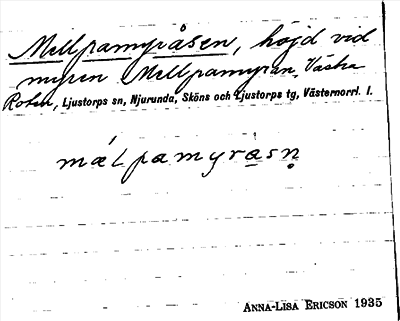 Mellpamyråsen, höjd vid
myren Mellpamyran, Västra
Roten, Ljustorps sn, Njurunda, Sköns och Ljustorps tg, Västernorrl. l.
målpamyråsn̥
ANNA-LISA ERICSON 1935